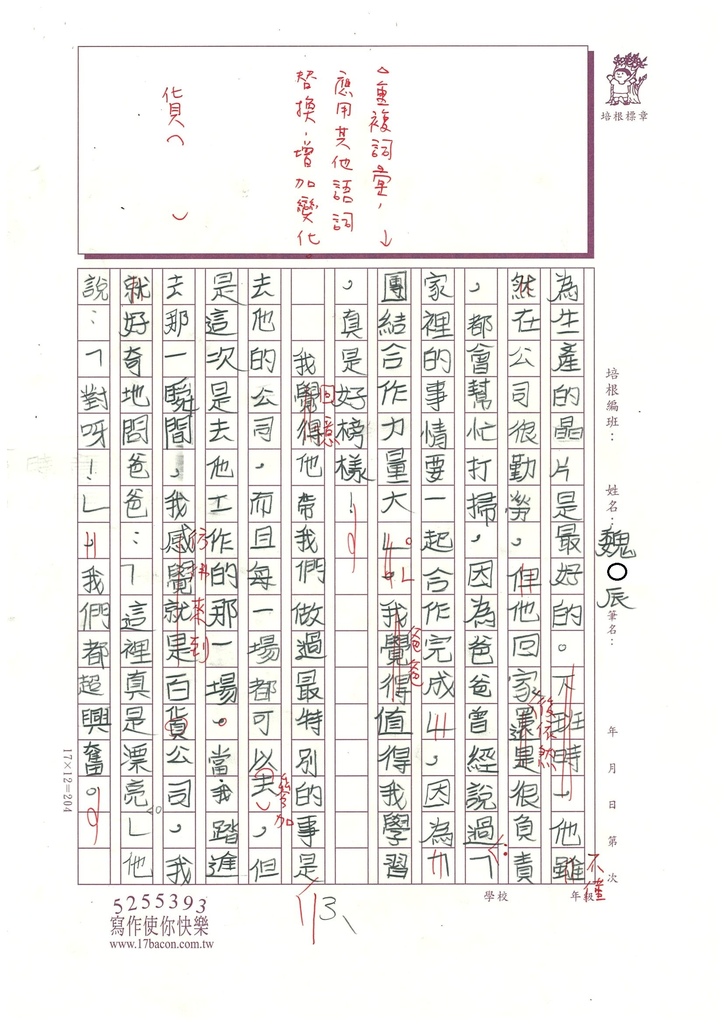 培根標章
△重複詞彙,↓
應用其他語詞
替換,增加變化
貨( )
培根編班:
姓名:魏○辰
筆名:
年 月 日 第 次
學校 年級
為生產的晶片是最好的。下班時,他雖
不僅
然在公司很勤勞,但他回家還是很負責
後依然
,都會幫忙打掃,因為爸爸曾經說過「
家裡的事情要一起合作完成」,因為
團結合作力量大」。我覺得值得我學習
爸爸
,真是好榜樣!
我覺得他帶我們做過最特別的事是
回憶
去他的公司,而且每一場都可以去,但
參加
是這次是去他工作的那一場。當我踏進
去那一瞬間,我感覺就是百貨公司,我
彷彿來到
就好奇地問爸爸:「這裡真是漂亮」他
說:「對呀!」我們都超興奮。
13、
17×12=204
5255393
寫作使你快樂
www.17bacon.com.tw